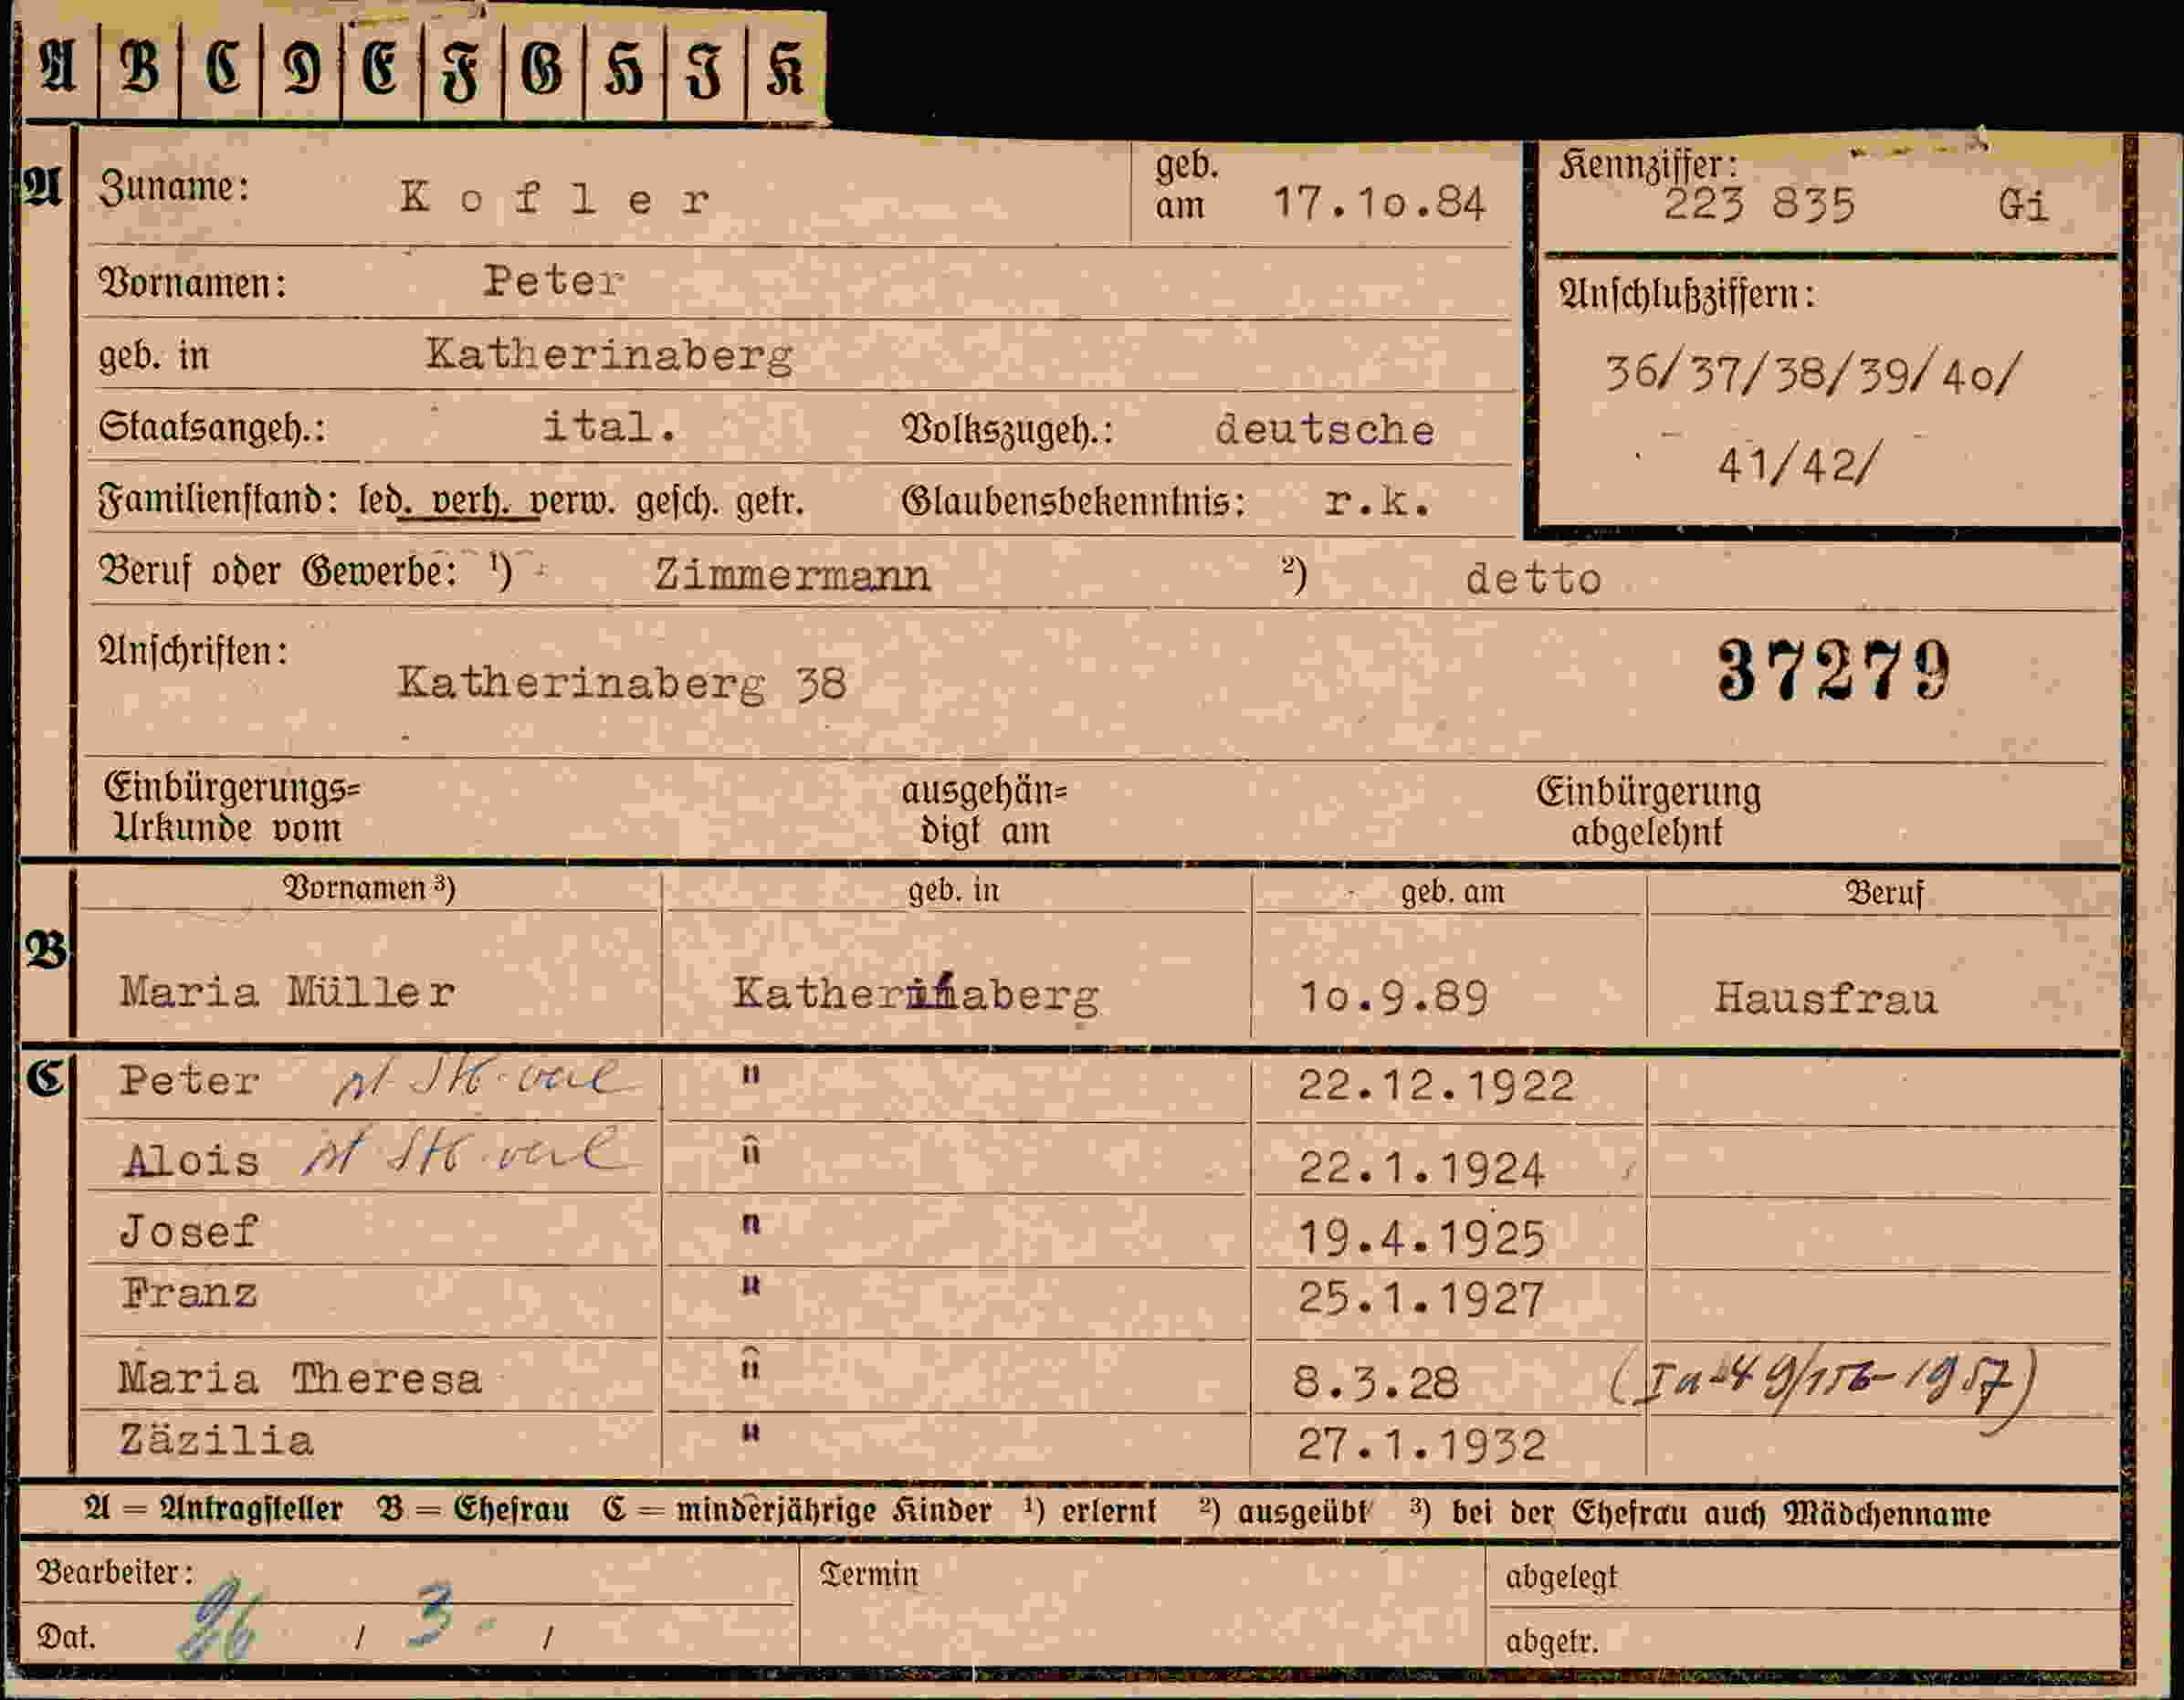 A B C D E F G H J K
A Zuname: Kofler geb. am 17.10.84 Kennziffer: 223 835 Gi
Vornamen: Peter
Anschlußziffern:
geb. in Katherinaberg
36/37/38/39/40/
Staatsangeh.: ital. Volkszugeh.: deutsche
41/42/
Familienstand: led. verh. verw. gesch. getr. Glaubensbekenntnis: r.k.
Beruf oder Gewerbe: ¹) Zimmermann ²) detto
Anschriften: Katherinaberg 38
37279
Einbürgerungs= Urkunde vom ausgehän= digt am Einbürgerung abgelehnt
Vornamen ³) geb. in geb. am Beruf
B Maria Müller Katherinaberg 10.9.89 Hausfrau
C Peter " 22.12.1922
Alois " 22.1.1924
Josef " 19.4.1925
Franz " 25.1.1927
Maria Theresa " 8.3.28
Zäzilia " 27.1.1932
A = Antragsteller B = Ehefrau C = minderjährige Kinder ¹) erlernt ²) ausgeübt ³) bei der Ehefrau auch Mädchenname
Bearbeiter: Termin abgelegt
Dat. 26 / 3. / abgetr.